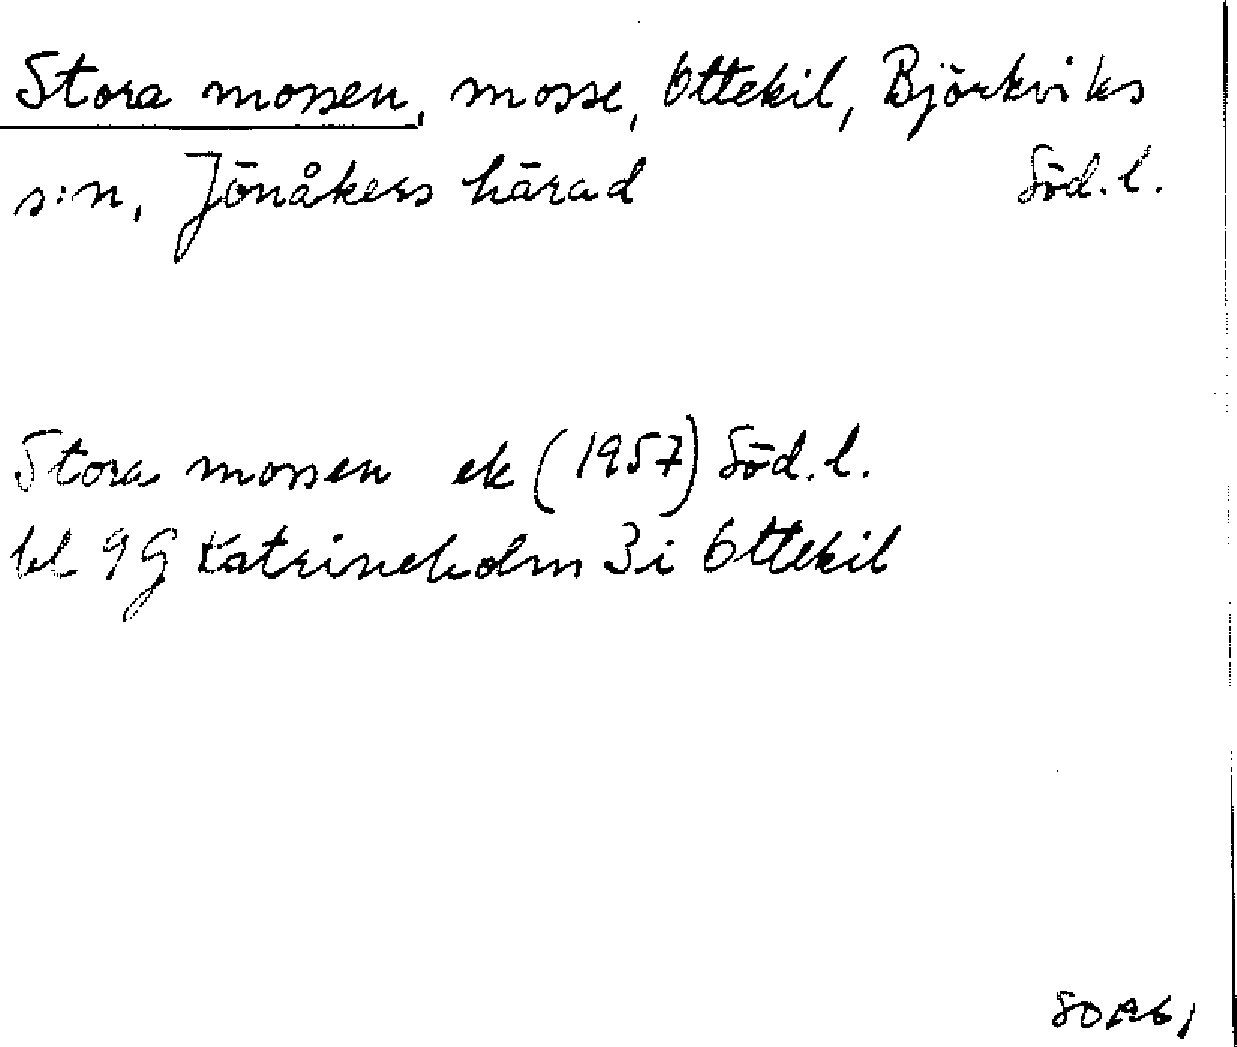 Stora mossen, mosse, Ottekil, Björkviks
s:n, Jönåkers härad Söd. l.
Stora mossen ek (1957) Söd. l.
bl 9G Katrineholm 3i Ottekil